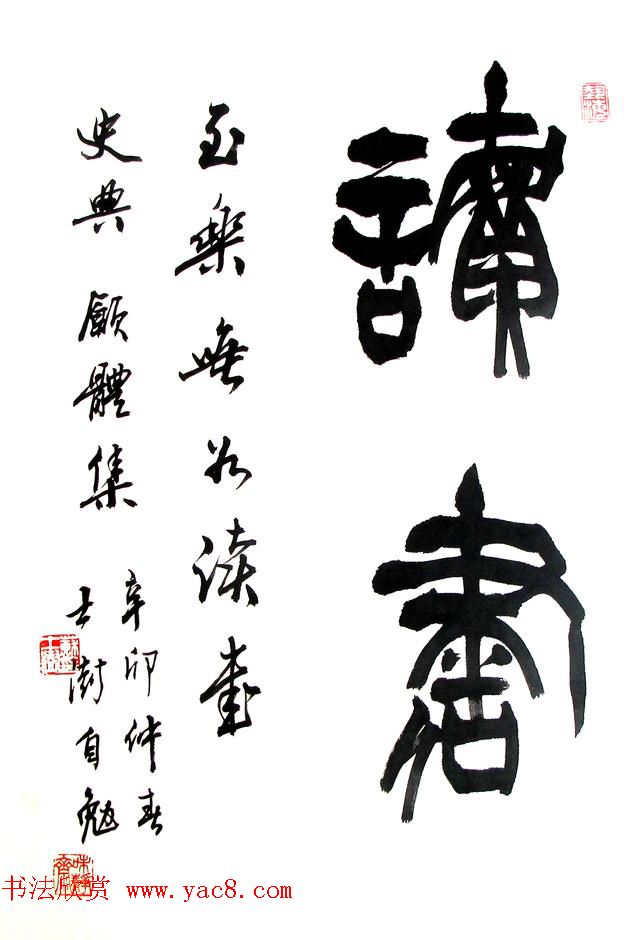 讀書
至樂無如读書
史典 願體集
辛卯仲春
士澍自勉
书法欣赏 www.yac8.com